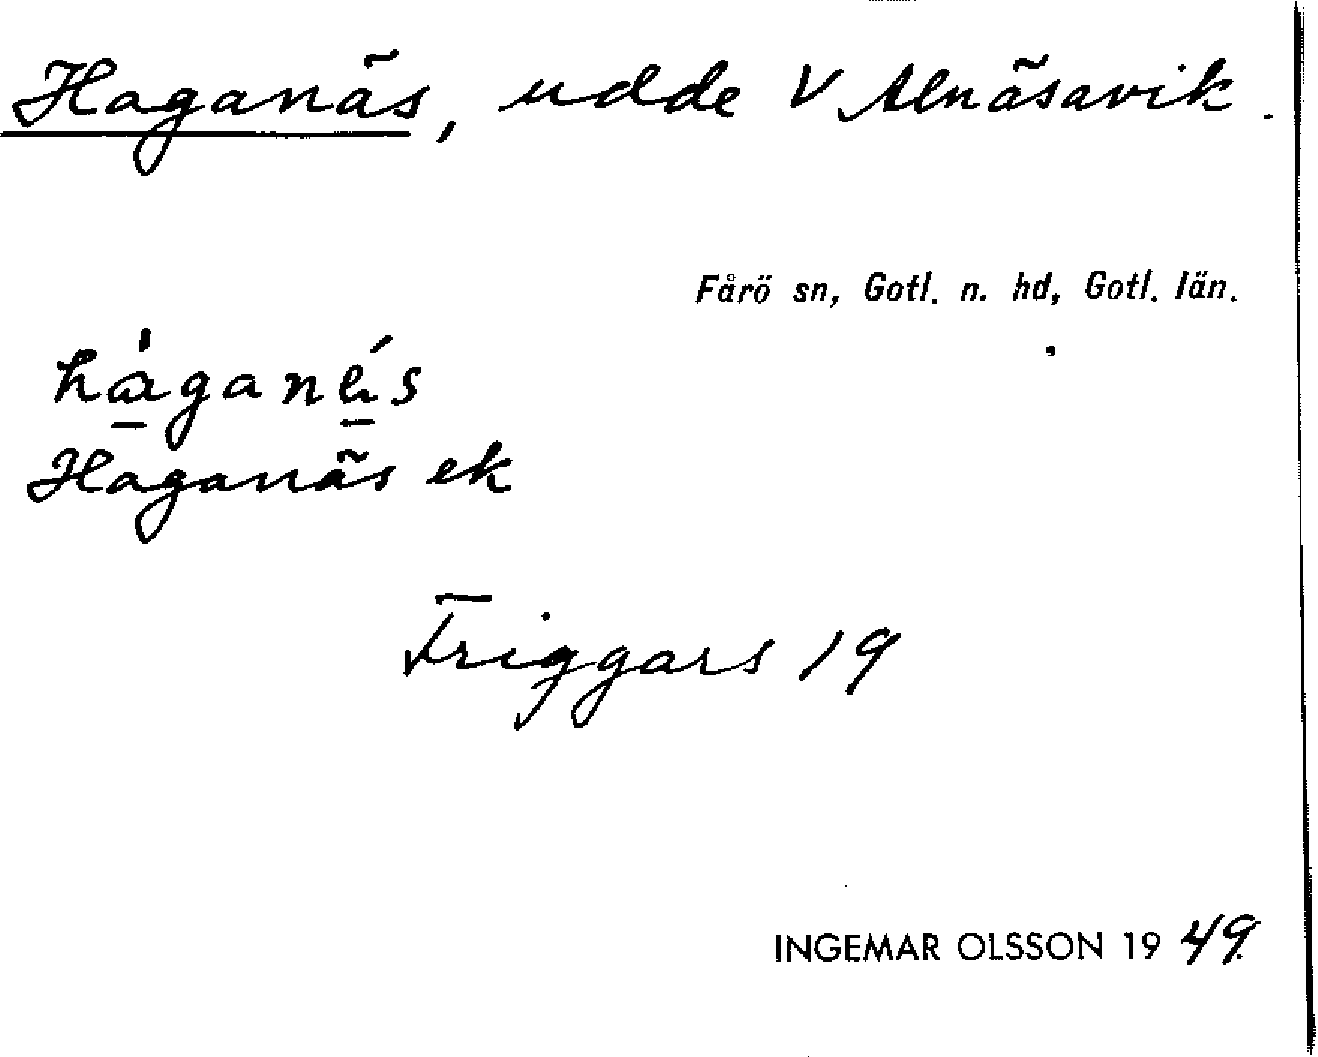 Haganäs, udde V Alnäsavik.
Fårö sn, Gotl. n. hd, Gotl. län.
håganés
Haganäs ek
Friggars 19
INGEMAR OLSSON 1949.